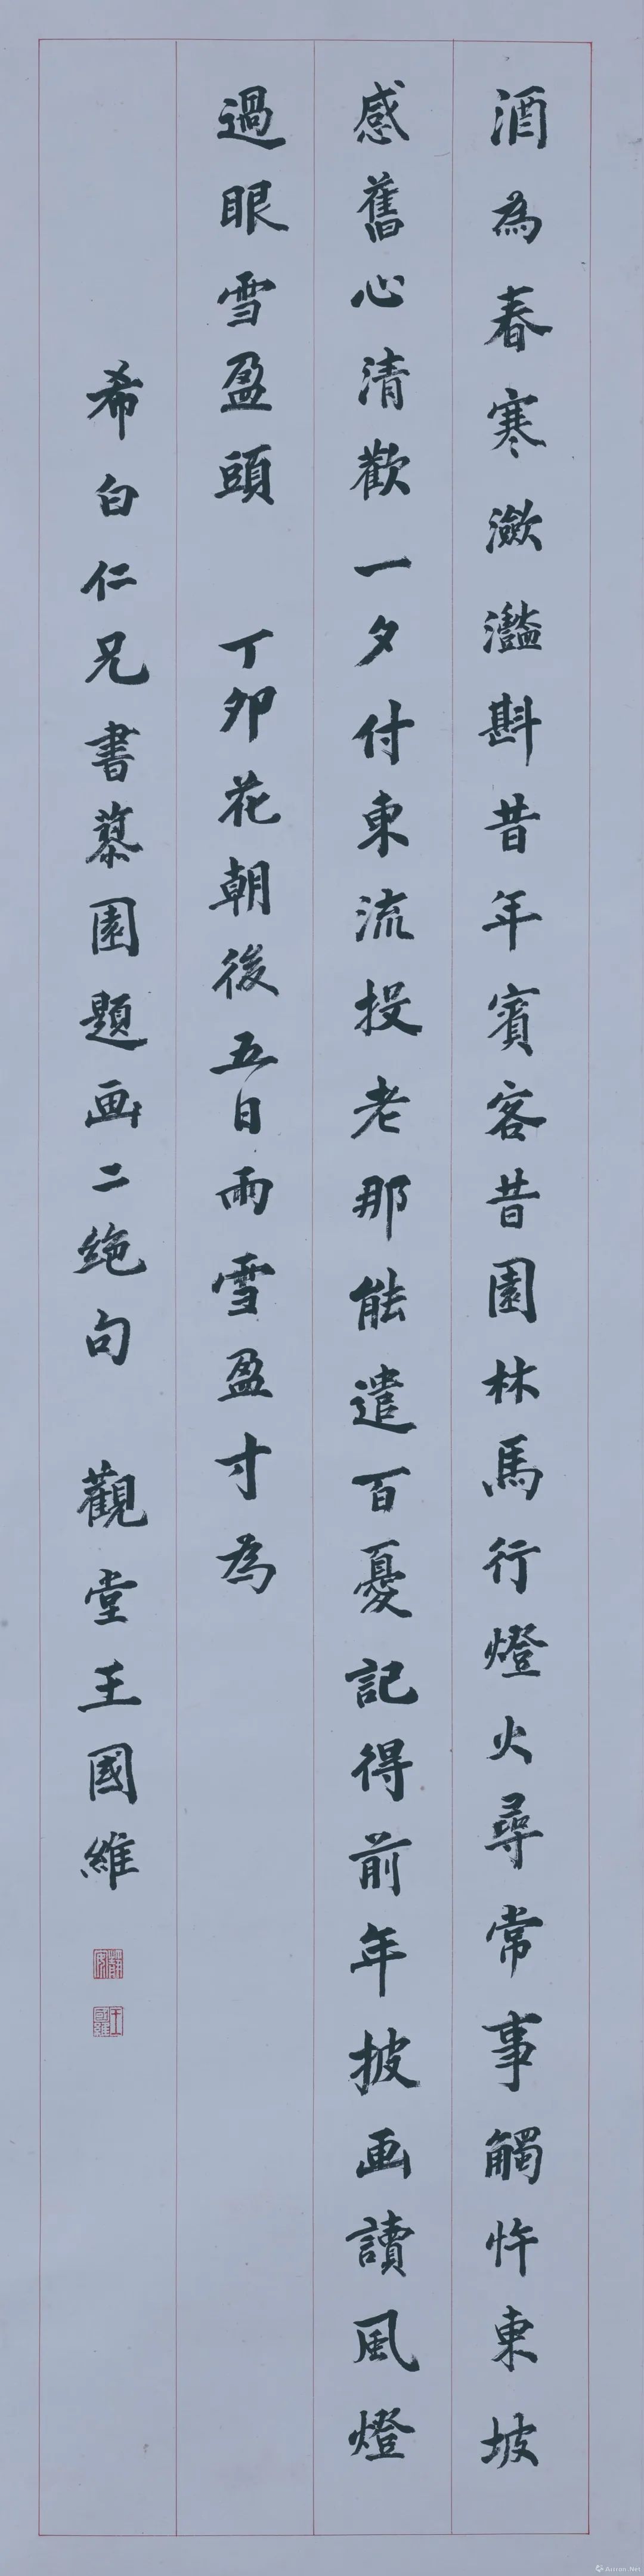 酒為春寒潋灩斟昔年賓客昔園林馬行燈火尋常事觸忤東坡
感舊心清歡一夕付東流投老那能遣百憂記得前年披画讀風燈
過眼雪盈頭 丁卯花朝後五日雨雪盈寸為
希白仁兄書摹園題画二絶句 觀堂王國維
王國維